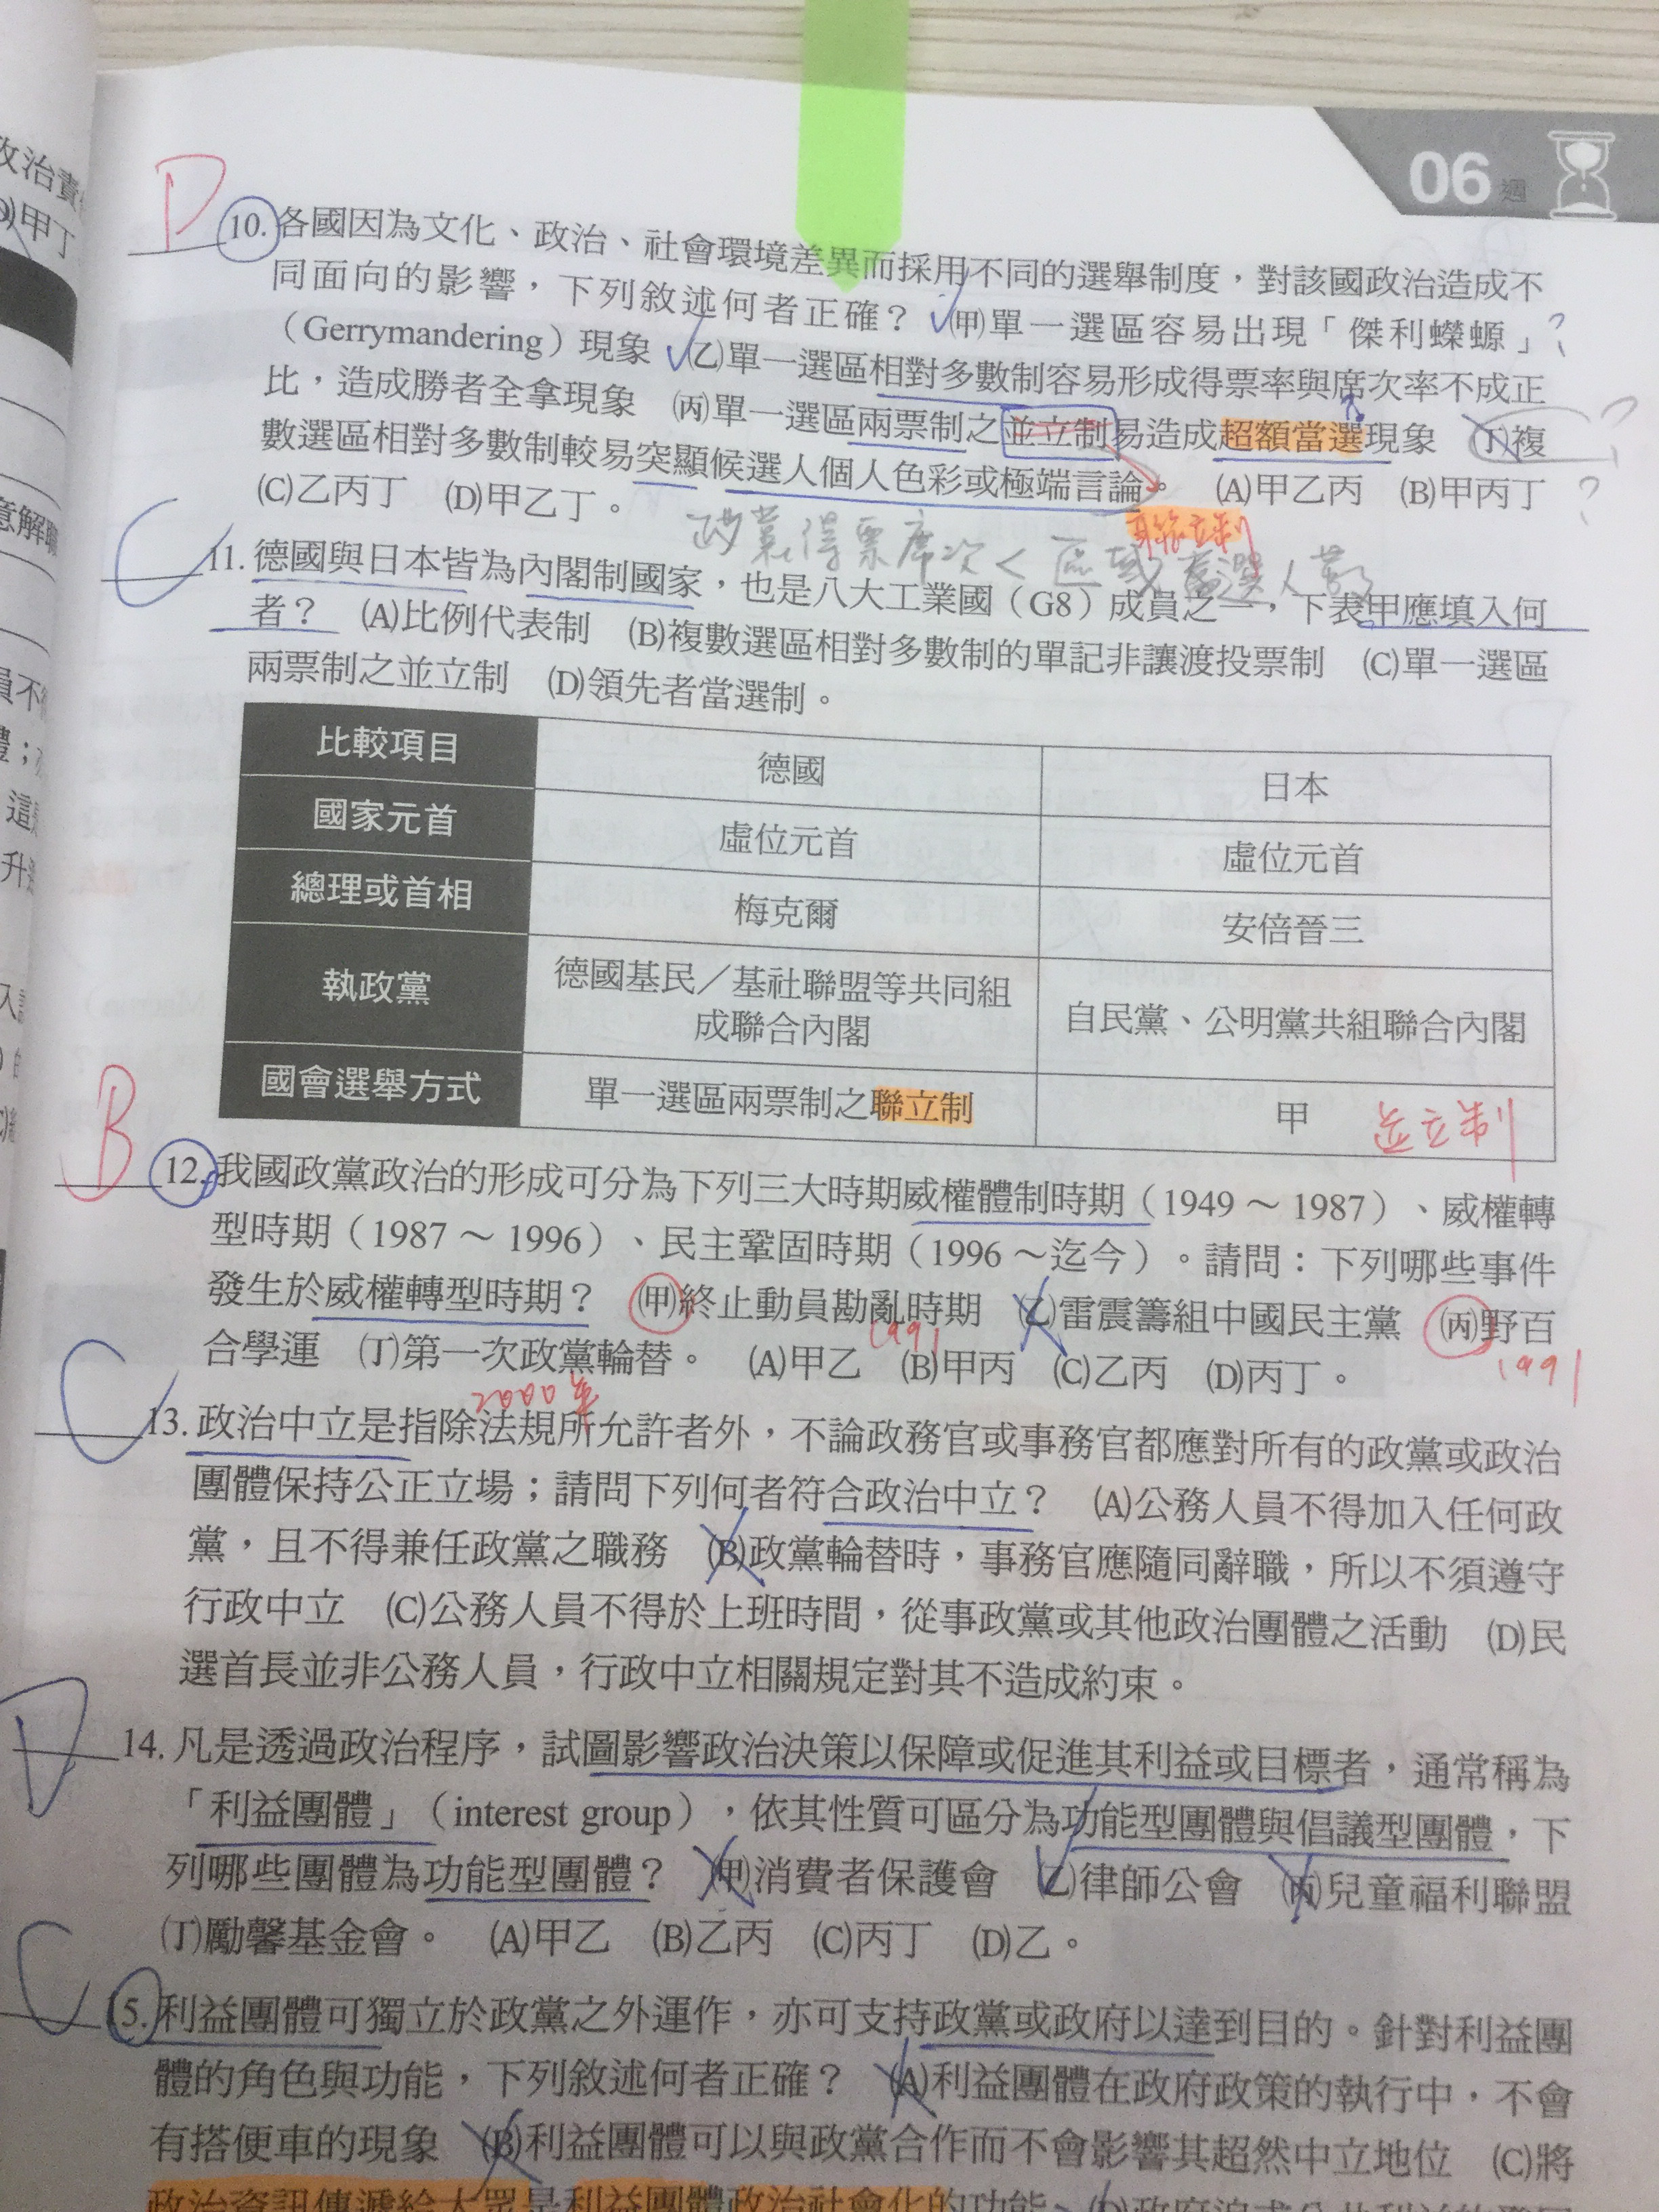 06週
政治責
甲丁
D
10. 各國因為文化、政治、社會環境差異而採用不同的選舉制度，對該國政治造成不
同面向的影響，下列敘述何者正確？ (甲)單一選區容易出現「傑利蠑螈」 ?
（Gerrymandering）現象 (乙)單一選區相對多數制容易形成得票率與席次率不成正
比，造成勝者全拿現象 (丙)單一選區兩票制之並立制易造成超額當選現象 (丁)複 ?
數選區相對多數制較易突顯候選人個人色彩或極端言論。 (A)甲乙丙 (B)甲丙丁 ?
(C)乙丙丁 (D)甲乙丁。
聯立制
政黨得票席次＜區域當選人數
C
11. 德國與日本皆為內閣制國家，也是八大工業國（G8）成員之一，下表甲應填入何
者？ (A)比例代表制 (B)複數選區相對多數制的單記非讓渡投票制 (C)單一選區
兩票制之並立制 (D)領先者當選制。
比較項目 德國 日本
國家元首 虛位元首 虛位元首
總理或首相 梅克爾 安倍晉三
執政黨 德國基民／基社聯盟等共同組
成聯合內閣 自民黨、公明黨共組聯合內閣
國會選舉方式 單一選區兩票制之聯立制 甲 並立制
B
12. 我國政黨政治的形成可分為下列三大時期威權體制時期（1949～1987）、威權轉
型時期（1987～1996）、民主鞏固時期（1996～迄今）。請問：下列哪些事件
發生於威權轉型時期？ (甲)終止動員勘亂時期 (乙)雷震籌組中國民主黨 (丙)野百
1991
合學運 (丁)第一次政黨輪替。 (A)甲乙 (B)甲丙 (C)乙丙 (D)丙丁。
1991
2000年
C
13. 政治中立是指除法規所允許者外，不論政務官或事務官都應對所有的政黨或政治
團體保持公正立場；請問下列何者符合政治中立？ (A)公務人員不得加入任何政
黨，且不得兼任政黨之職務 (B)政黨輪替時，事務官應隨同辭職，所以不須遵守
行政中立 (C)公務人員不得於上班時間，從事政黨或其他政治團體之活動 (D)民
選首長並非公務人員，行政中立相關規定對其不造成約束。
D
14. 凡是透過政治程序，試圖影響政治決策以保障或促進其利益或目標者，通常稱為
「利益團體」（interest group），依其性質可區分為功能型團體與倡議型團體，下
列哪些團體為功能型團體？ (甲)消費者保護會 (乙)律師公會 (丙)兒童福利聯盟
(丁)勵馨基金會。 (A)甲乙 (B)乙丙 (C)丙丁 (D)乙。
C
15. 利益團體可獨立於政黨之外運作，亦可支持政黨或政府以達到目的。針對利益團
體的角色與功能，下列敘述何者正確？ (A)利益團體在政府政策的執行中，不會
有搭便車的現象 (B)利益團體可以與政黨合作而不會影響其超然中立地位 (C)將
政治資訊傳遞給大眾是利益團體政治社會化的功能